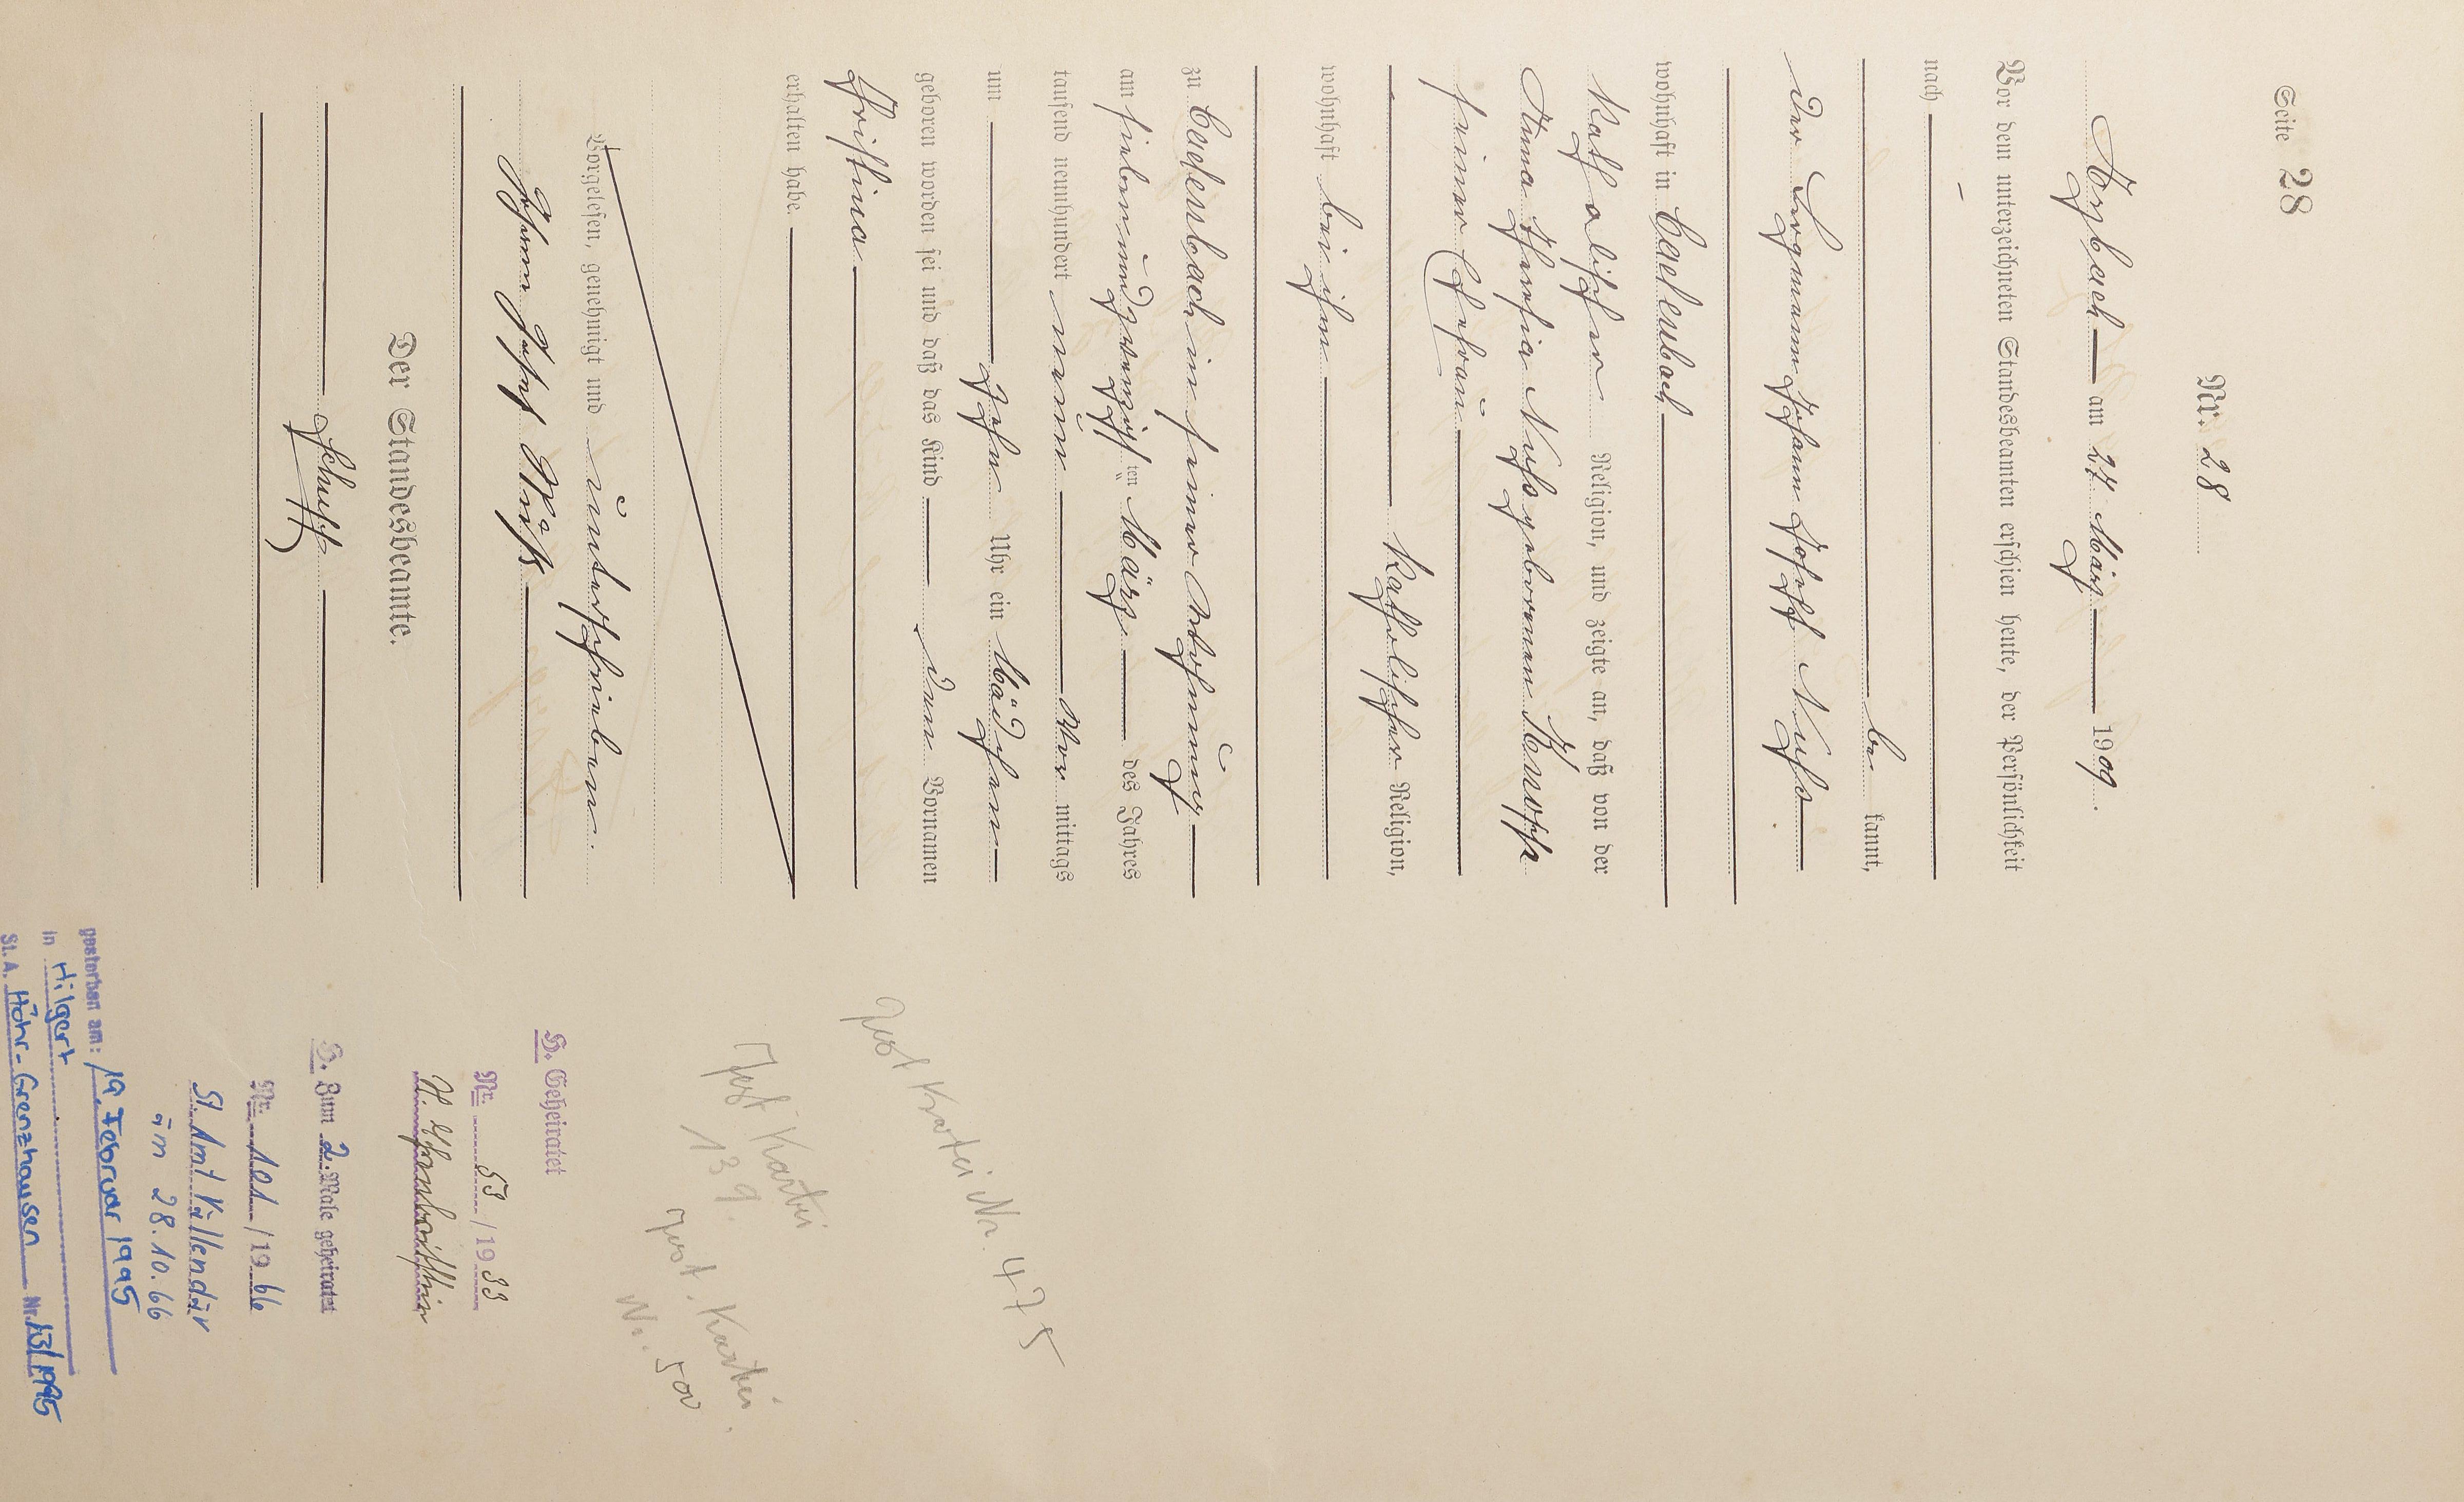 Seite 28
Nr. 28
am 27 März 1909.
Vor dem unterzeichneten Standesbeamten erschien heute, der Persönlichkeit
nach
be kannt,
der Bergmann Johann Josef Nuhs
wohnhaft in Cadenbach
Katholischer Religion, und zeigte an, daß von der
Anna Theresia Nuhs geborenen Knopp
seiner Ehefrau
Katholischer Religion,
wohnhaft bei ihm
zu Cadenbach in seiner Wohnung
am siebenundzwanzigsten März des Jahres
tausend neunhundert neun Vor mittags
um zehn Uhr ein Mädchen
geboren worden sei und daß das Kind den Vornamen
Christina
erhalten habe.
Vorgelesen, genehmigt und unterschrieben.
Johann Josef
Der Standesbeamte.
Schupp
Kartei Nr. 475
Kartei
139.
Kartei.
Nr. 500
H. Geheiratet
Nr. 53 / 1933
H. Ehrenbreitstein
H. Zum 2. Male geheiratet
Nr. 101 / 1966
St. Amt Vallendar
am 28.10.66
gestorben am: 19. Februar 1995
in Hilgert
St. A. Höhr-Grenzhausen Nr. 13/1995